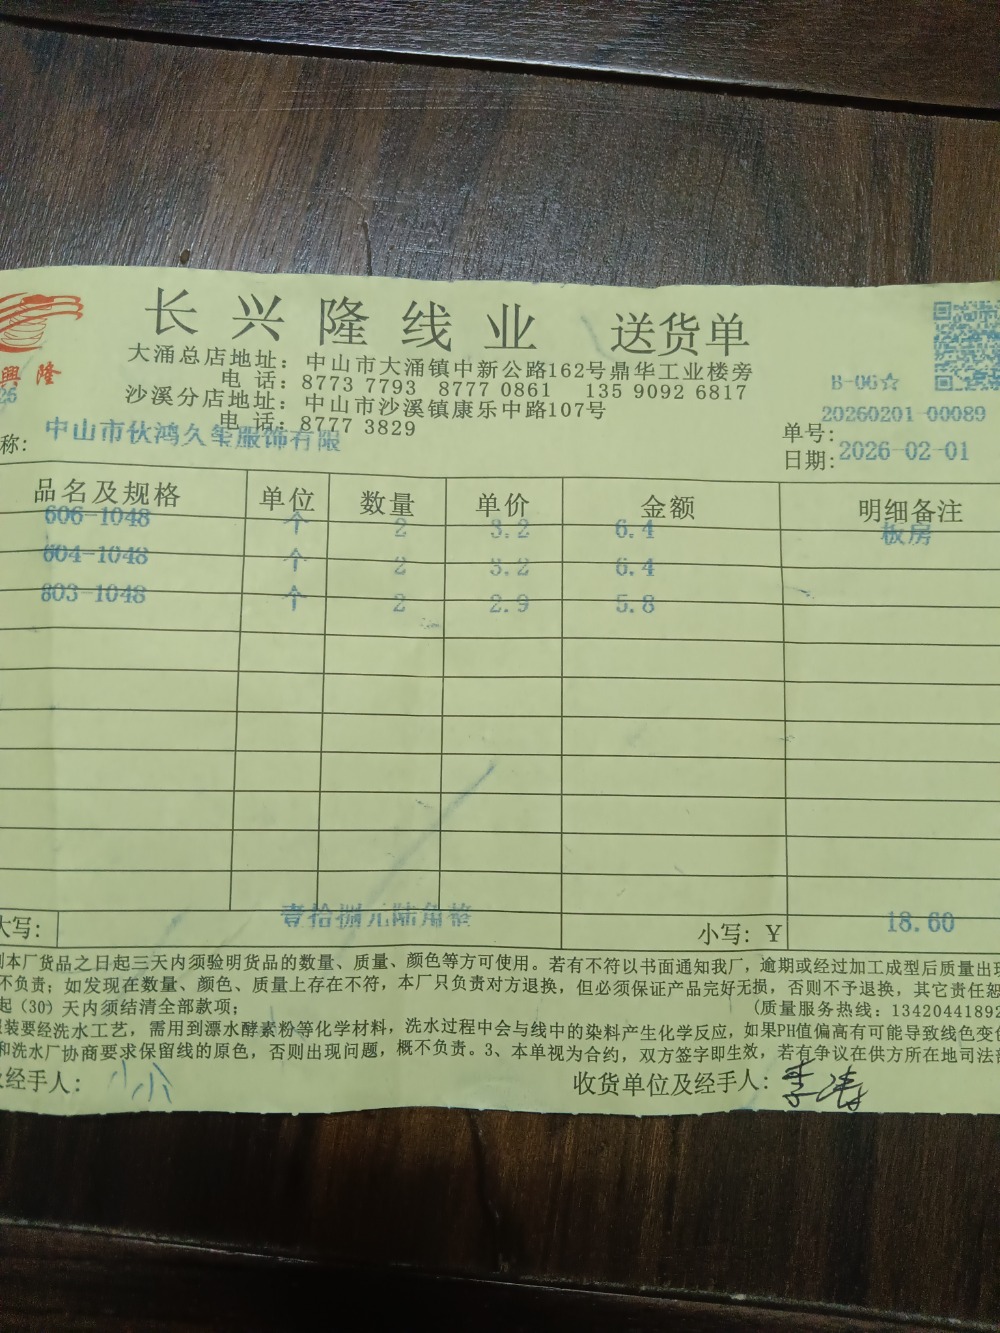 长兴隆线业 送货单
興隆
大涌总店地址：中山市大涌镇中新公路162号鼎华工业楼旁
电 话：8773 7793 8777 0861 135 9092 6817
沙溪分店地址：中山市沙溪镇康乐中路107号
电 话：8777 3829
B-06☆
26
称：中山市伙鸿久玺服饰有限
单号：20260201-00089
日期：2026-02-01
品名及规格 单位 数量 单价 金额 明细备注
606-1048 个 2 3.2 6.4 板房
604-1048 个 2 3.2 6.4
803-1048 个 2 2.9 5.8
大写： 壹拾捌元陆角整 小写：￥ 18.60
到本厂货品之日起三天内须验明货品的数量、质量、颜色等方可使用。若有不符以书面通知我厂，逾期或经过加工成型后质量出现
不负责；如发现在数量、颜色、质量上存在不符，本厂只负责对方退换，但必须保证产品完好无损，否则不予退换，其它责任恕
起（30）天内须结清全部款项； （质量服务热线：1342044189
装要经洗水工艺，需用到漂水酵素粉等化学材料，洗水过程中会与线中的染料产生化学反应，如果PH值偏高有可能导致线色变
和洗水厂协商要求保留线的原色，否则出现问题，概不负责。3、本单视为合约，双方签字即生效，若有争议在供方所在地司法
及经手人： 小小 收货单位及经手人：李涛